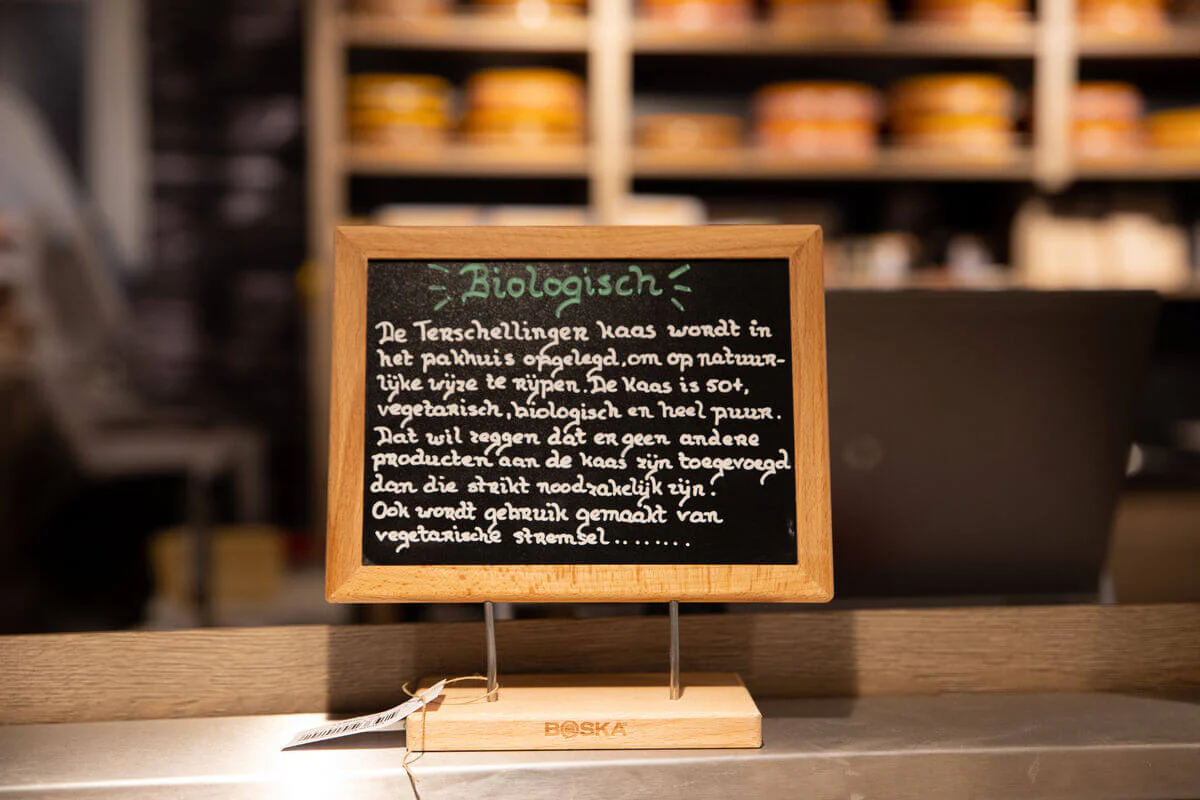 Biologisch
De Terschellinger kaas wordt in
het pakhuis opgelegd, om op natuur-
lijke wijze te rijpen. De kaas is 50+,
vegetarisch, biologisch en heel puur.
Dat wil zeggen dat er geen andere
producten aan de kaas zijn toegevoegd
dan die strikt noodzakelijk zijn.
Ook wordt gebruik gemaakt van
vegetarische stremsel........
BOSKA